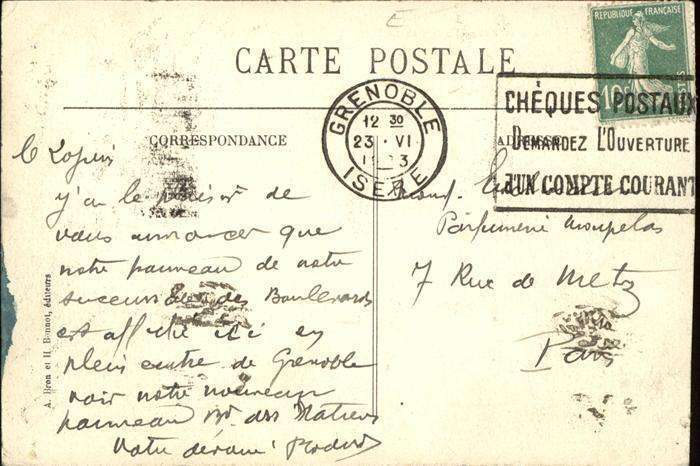 CARTE POSTALE
RÉPUBLIQUE FRANÇAISE
10c
GRENOBLE
12 30
23 · VI
ISERE
CHÈQUES POSTAUX
DEMANDEZ L'OUVERTURE
D'UN COMPTE COURANT
CORRESPONDANCE
j'ai le plaisir de
vous annoncer que
notre panneau de notre
succursale des Boulevards
est affiché ici en
plein centre de Grenoble
voir notre nouveau
panneau Bd. des
Votre dévoué
Parfumerie
7 Rue de Metz
Paris
A. Bron et H. Bonnot, éditeurs